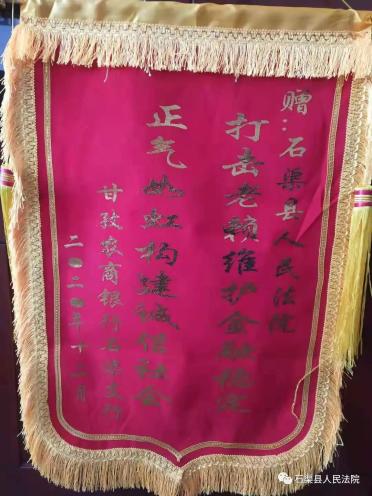 赠：石渠县人民法院
打击老赖维护金融稳定
正气如虹构建诚信社会
甘孜农商银行石渠支行
二〇二〇年十二月
石渠县人民法院